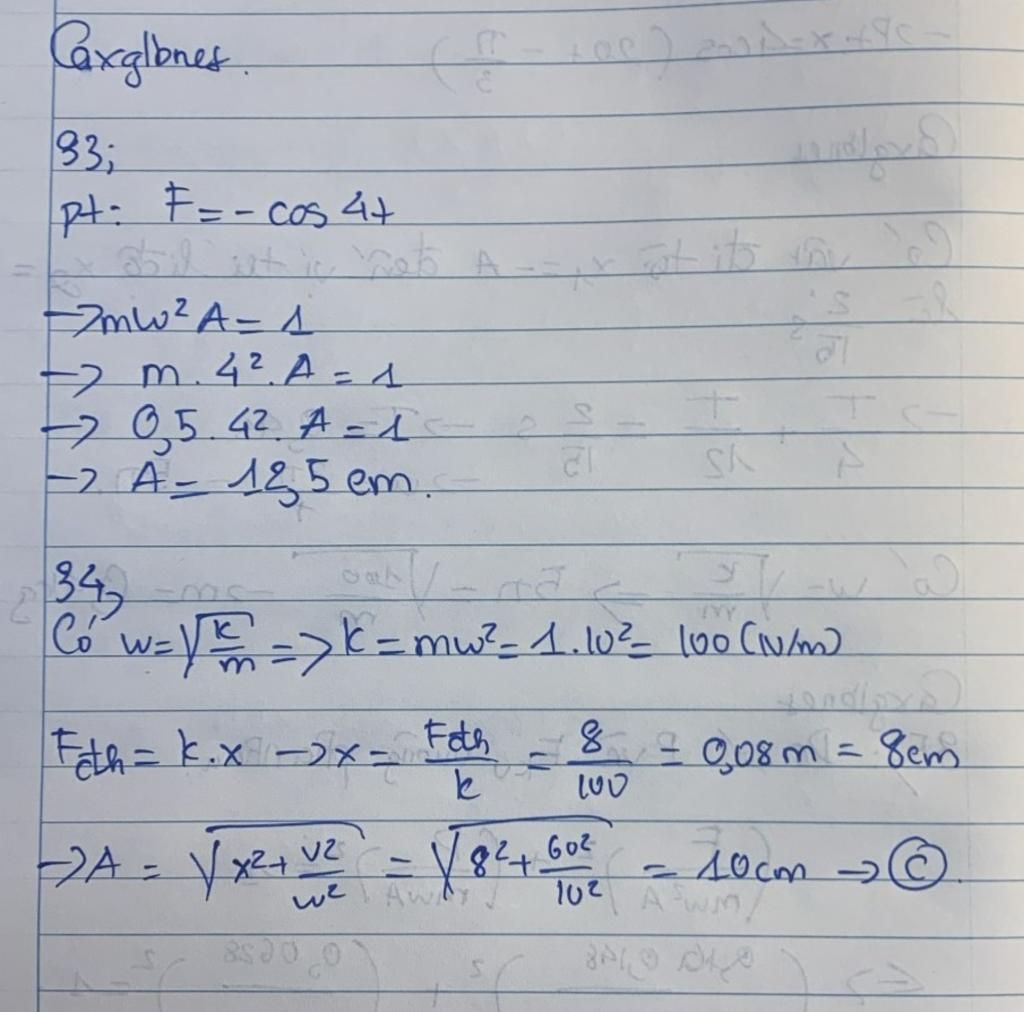 Caxglbnes.
33;
pt: F = - cos 4t
→ mω² A = 1
→ m . 4² . A = 1
→ 0,5 . 4² . A = 1
→ A = 12,5 cm.
34,
Có ω = √(k/m) => k = mω² = 1.10² = 100 (N/m)
Fđh = k.x → x = Fđh/k = 8/100 = 0,08 m = 8cm
→ A = √(x² + v²/ω²) = √(8² + 60²/10²) = 10 cm → Ⓒ.